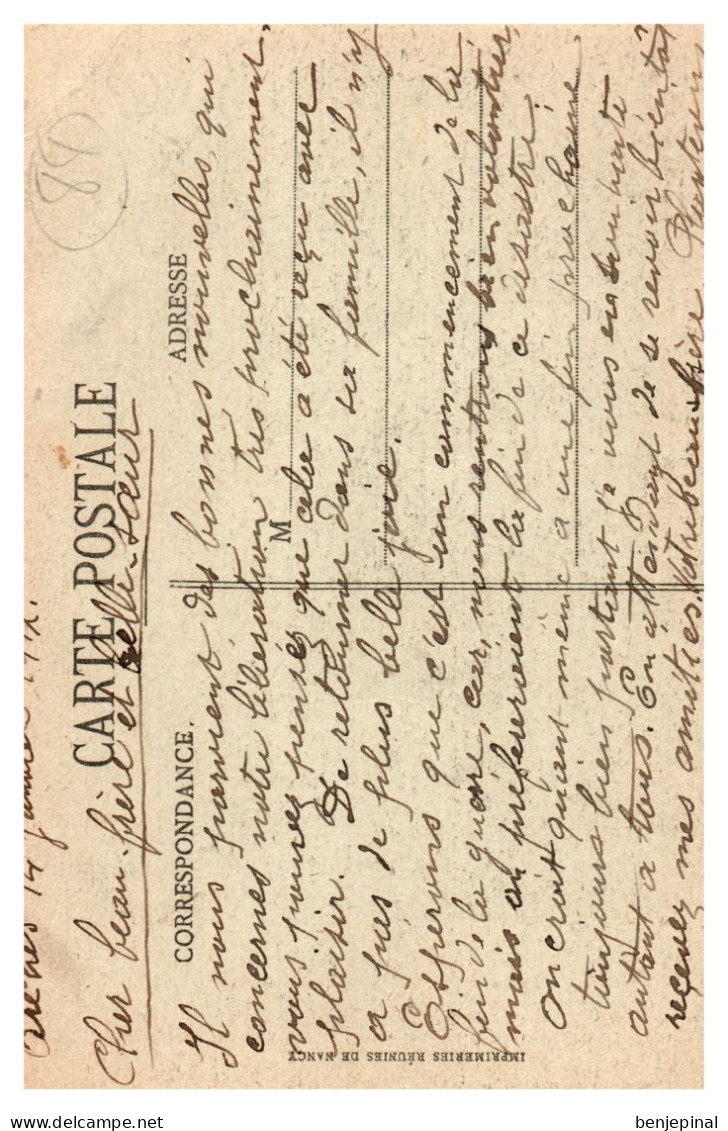 14 janvier
CARTE POSTALE
Cher beau-frère et belle-sœur
CORRESPONDANCE.
ADRESSE
M
Il nous parvient des bonnes nouvelles, qui
concernes notre libération très prochainement,
vous pouvez pensés que cela a été reçu avec
plaisir. De retourner dans sa famille, il n'y
a pas de plus belle joie.
Espérons que c'est un commencement de la
fin de la guerre, car, nous rentrons bien volontier,
mais on préfèreraient la fin de ce désastre.
On croit quant même à une fin prochaine
toujours bien portant je vous en souhaite
autant à tous. En attendant de se revoir bientôt
recevez mes amitiés. Votre beau-frère
IMPRIMERIES RÉUNIES DE NANCY
benjepinal